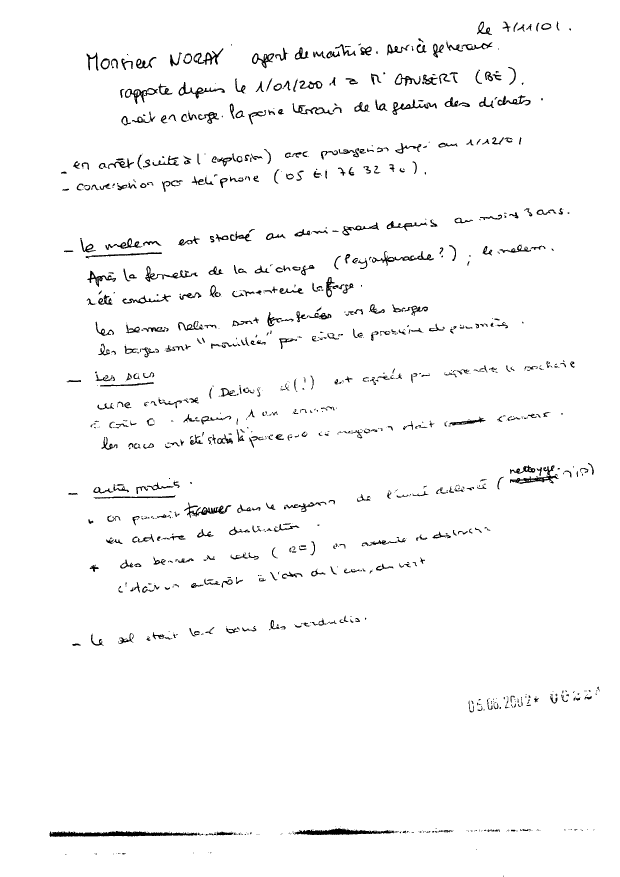 le 7/11/01.
Monsieur NORAY agent de maîtrise. service généraux.
rapporte depuis le 1/01/2001 à Mr GAUBERT (BE).
avait en charge la partie terrain de la gestion des déchets.
- en arrêt (suite à l'explosion) avec prolongation jusqu'au 1/12/01
- conversation par téléphone (05 61 76 32 70).
- le melem est stocké au demi-grand depuis au moins 3 ans.
Après la fermeture de la décharge ( ?) ; le melem.
a été conduit vers la cimenterie Lafarge.
les bennes Melem sont transférées vers les barges
les barges sont "mouillées" pour éviter le problème de poussières.
- Les sacs
une entreprise ( (!) est agréée pour reprendre la sacherie
à coût 0. depuis, 1 an environ
les sacs ont été stockés là parce que ce magasin était couvert.
- autres produits.
* on pouvait trouver dans le magasin de l' (nettoyage
en attente de destruction.
* des bennes de ( ) en attente de destruction
c'était un entrepôt à l'abri de l'eau, du vent
- le sol était tous les vendredis.
05.06.2002* 0022